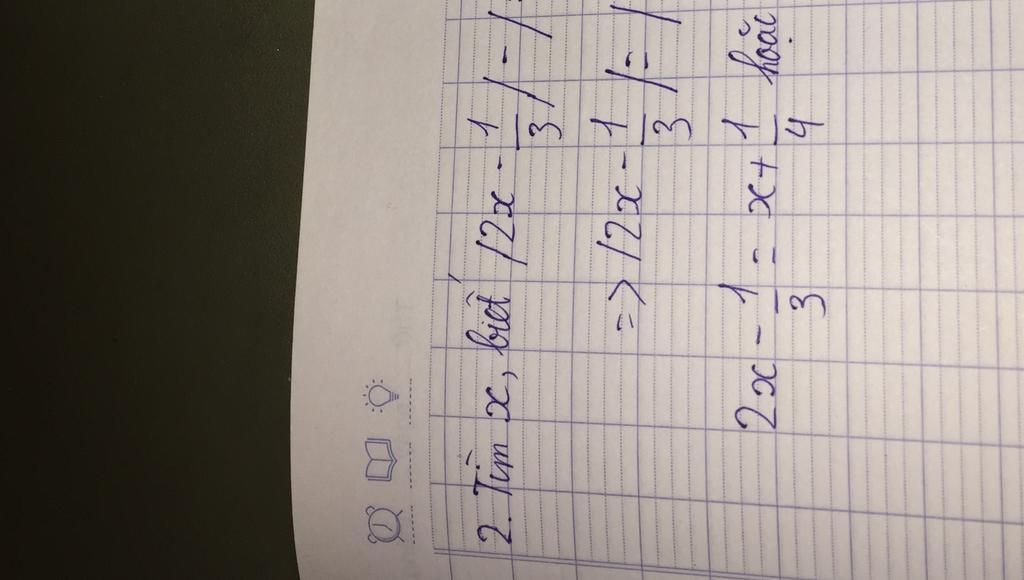 2. Tìm x, biết |2x - 1/3| - |
=> |2x - 1/3| = |
2x - 1/3 = x + 1/4 hoặc